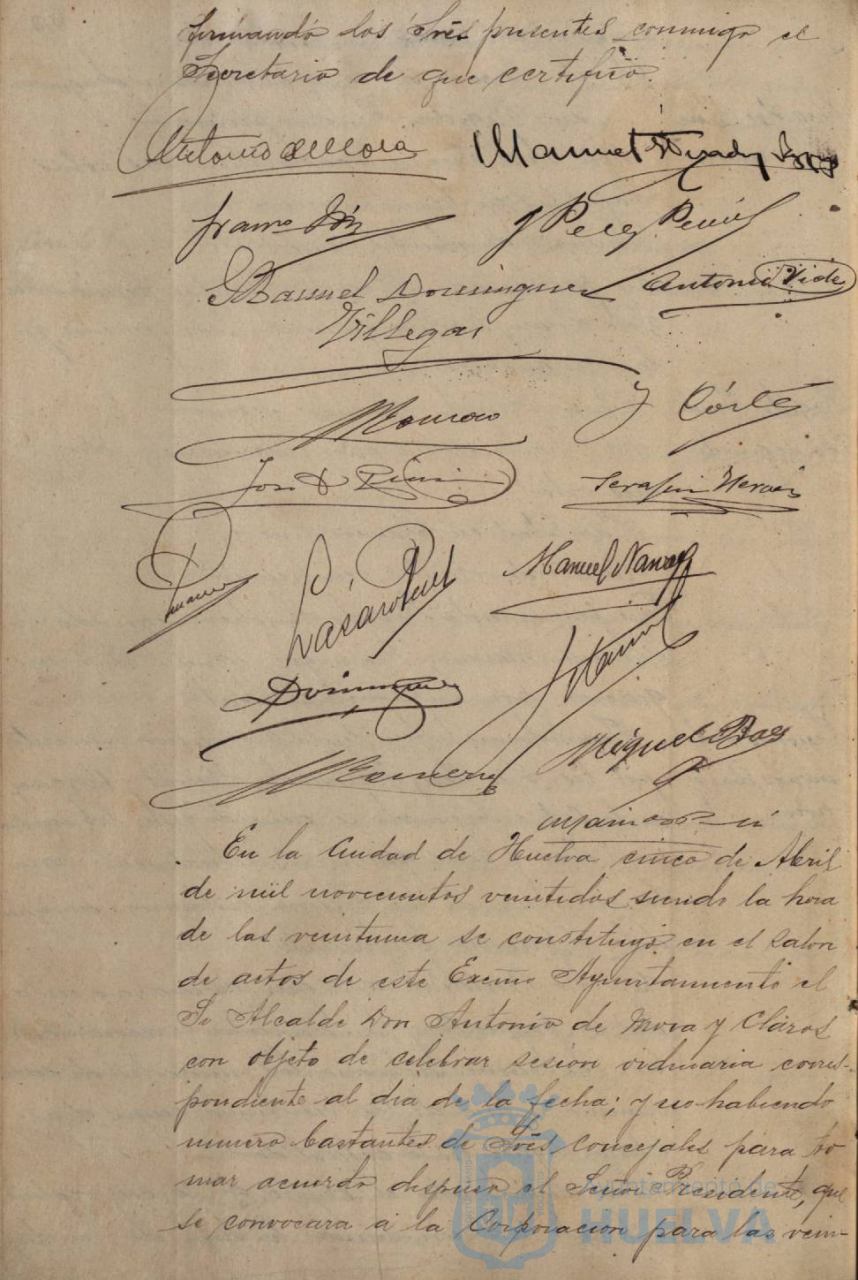 firmando los Sres presentes conmigo el
Secretario de que certifico.
Antonio de Mora
Manuel
J Perez
Manuel Dominguez
Villegas
Antonio Vides
y Córte
José
Serafin
Manuel Navarro
Lázaro
Dominguez
Romero
Miguel Baez
En la Ciudad de Huelva cinco de Abril
de mil novecientos veintidos siendo la hora
de las veintiuna se constituyó en el Salon
de actos de este Excmo Ayuntamiento el
Sr Alcalde Don Antonio de Mora y Claros
con objeto de celebrar sesion ordinaria corres-
pondiente al dia de la fecha; y no habiendo
numero bastantes de Sres Concejales para to
mar acuerdo dispuso el Señor Presidente, que
se convocara á la Corporacion para las vein-
Ayuntamiento de
HUELVA